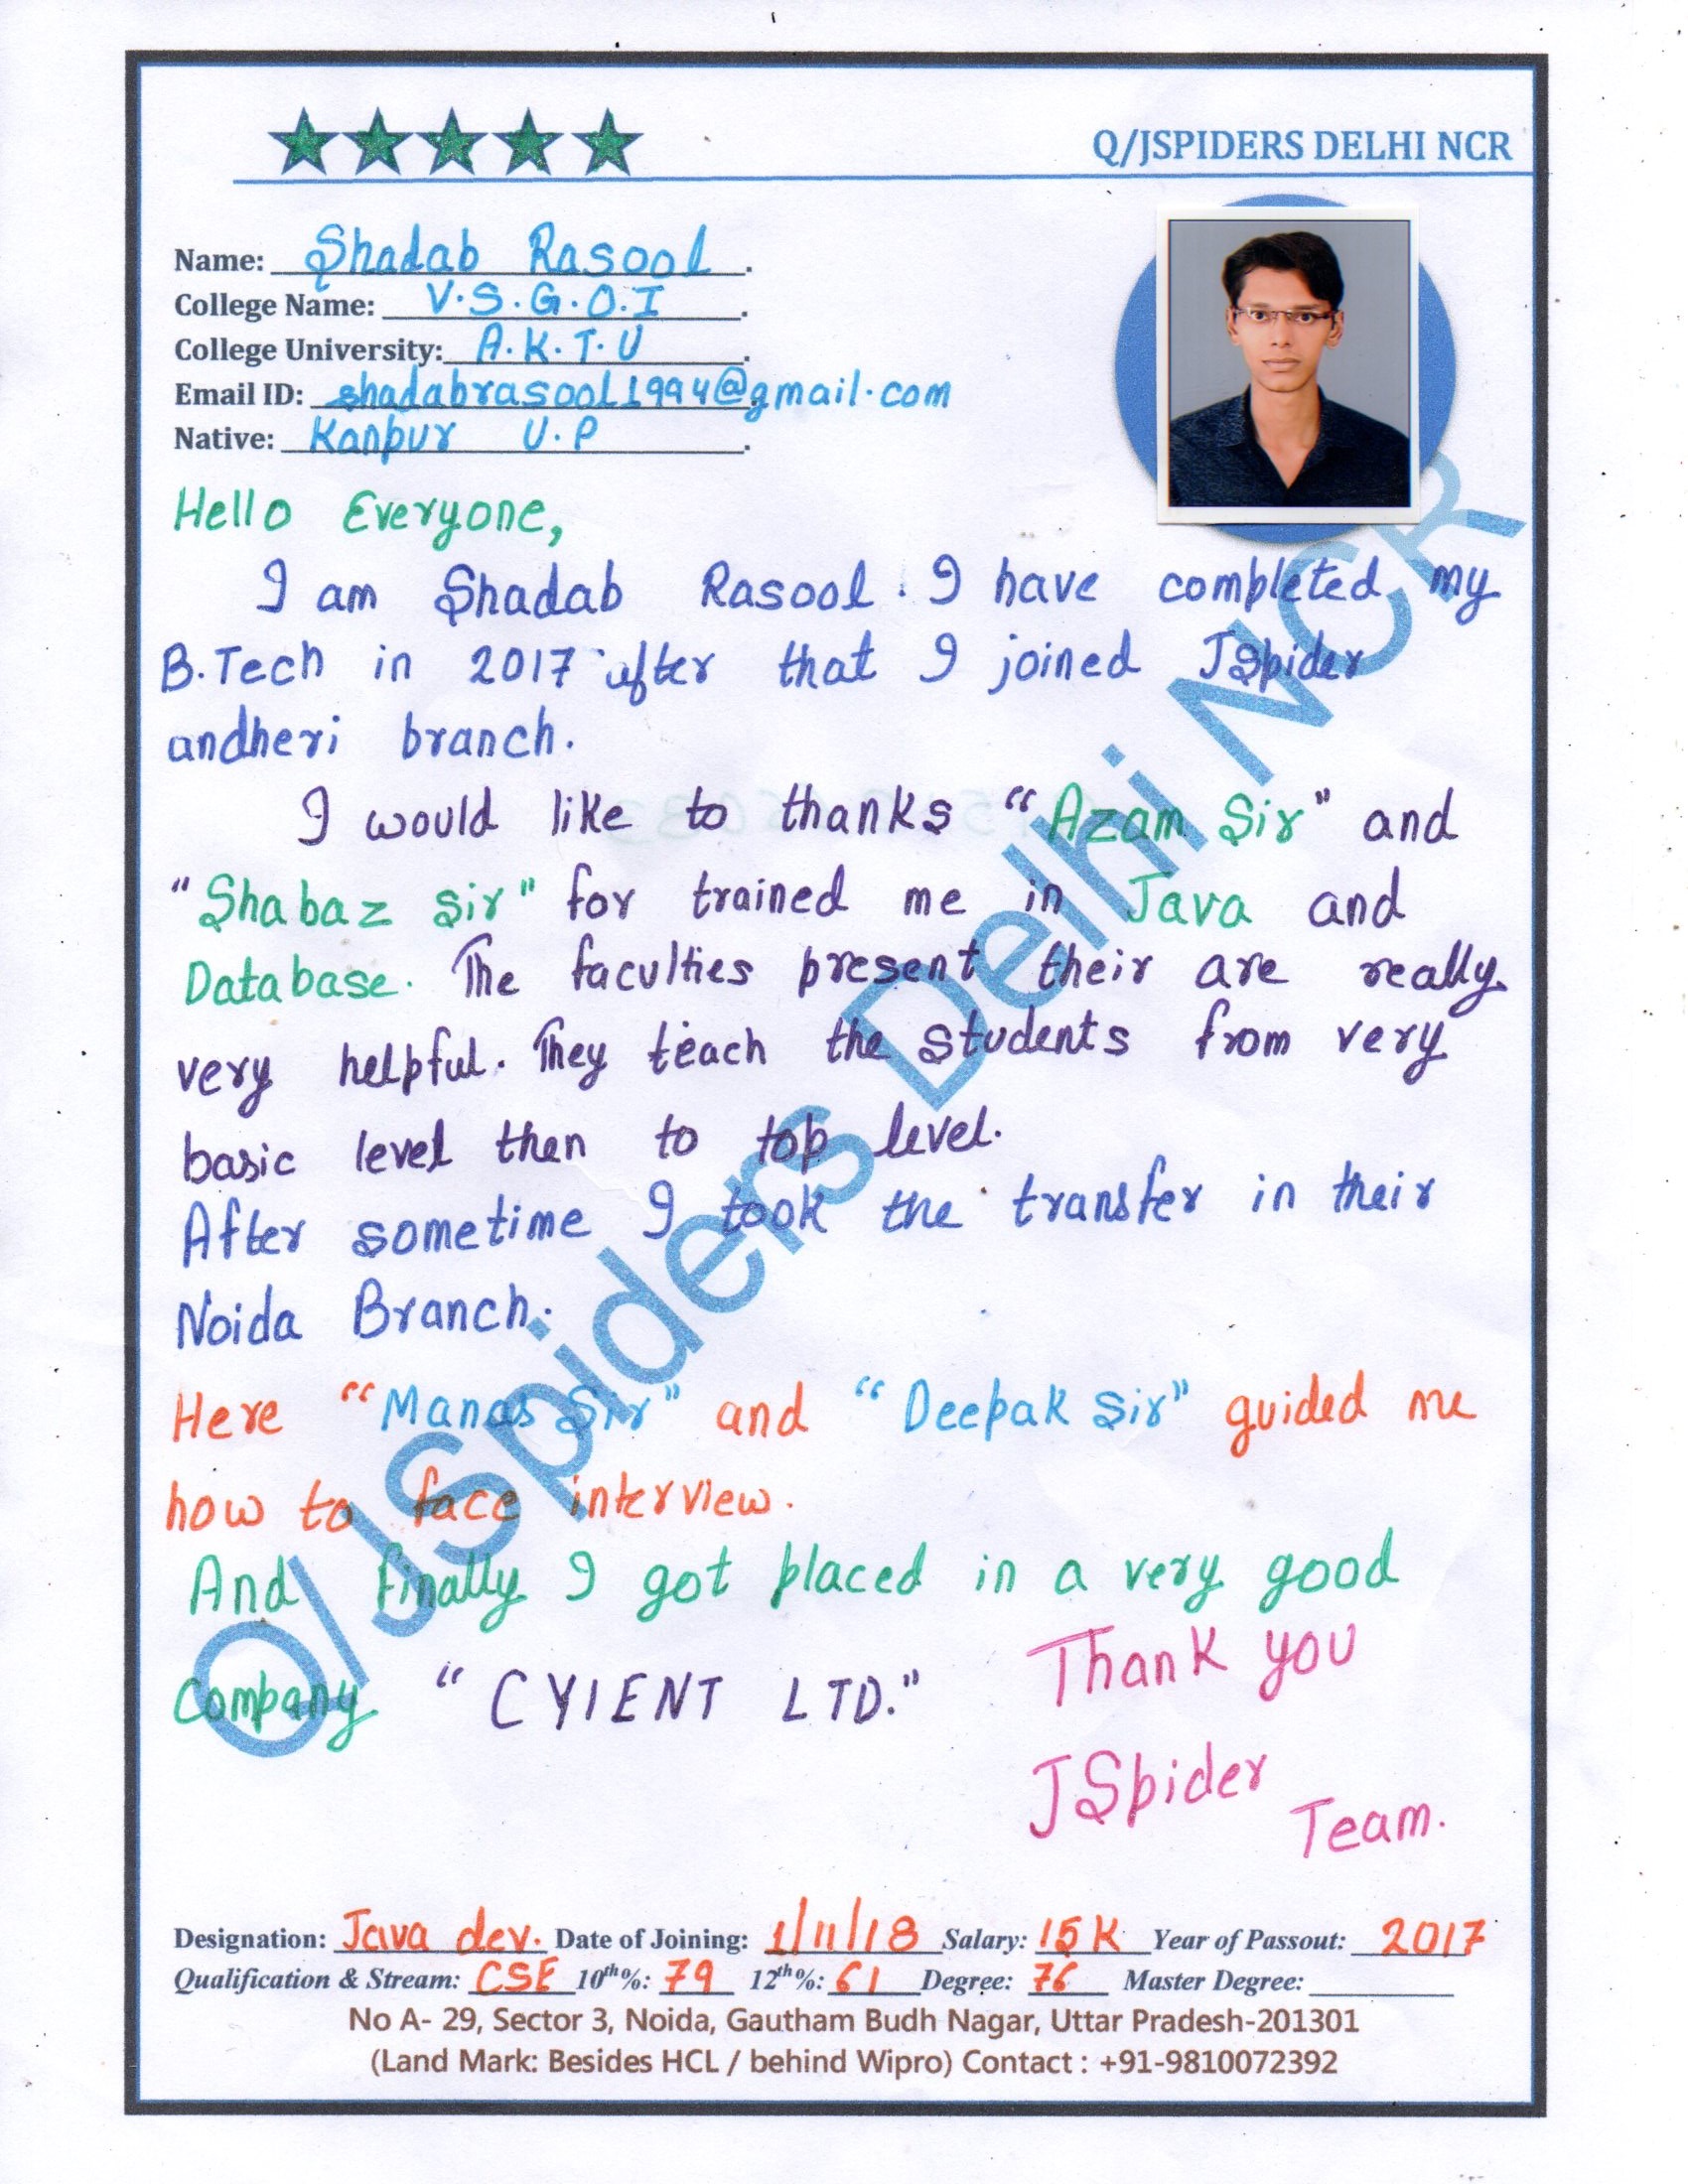 Q/JSPIDERS DELHI NCR
Name: Shadab Rasool.
College Name: V.S.G.O.I.
College University: A.K.T.U.
Email ID: shadabrasool1994@gmail.com
Native: Kanpur U.P.
Hello Everyone,
I am Shadab Rasool. I have completed my
B.Tech in 2017 after that I joined JSpider
andheri branch.
I would like to thanks "Azam Sir" and
"Shabaz Sir" for trained me in Java and
Database. The faculties present their are really
very helpful. They teach the students from very
basic level then to top level.
After sometime I took the transfer in their
Noida Branch.
Here "Manas Sir" and "Deepak Sir" guided me
how to face interview.
And finally I got placed in a very good
Company "CYIENT LTD."
Thank you
JSpider
Team.
Q/JSpiders Delhi NCR
Designation: Java dev. Date of Joining: 1/11/18 Salary: 15K Year of Passout: 2017
Qualification & Stream: CSE 10th%: 79 12th%: 61 Degree: 76 Master Degree:
No A- 29, Sector 3, Noida, Gautham Budh Nagar, Uttar Pradesh-201301
(Land Mark: Besides HCL / behind Wipro) Contact : +91-9810072392